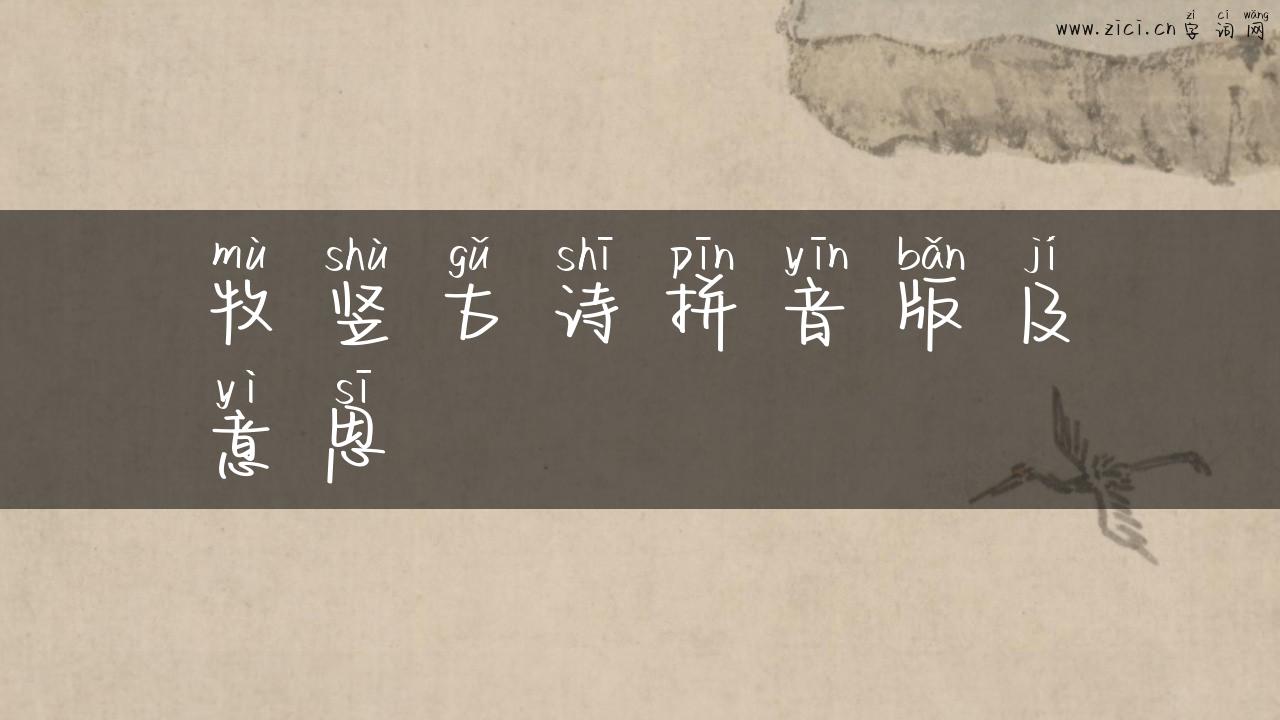 www.zici.cn zì cí wǎng
字词网
mù shù gǔ shī pīn yīn bǎn jí
牧竖古诗拼音版及
yì sī
意思